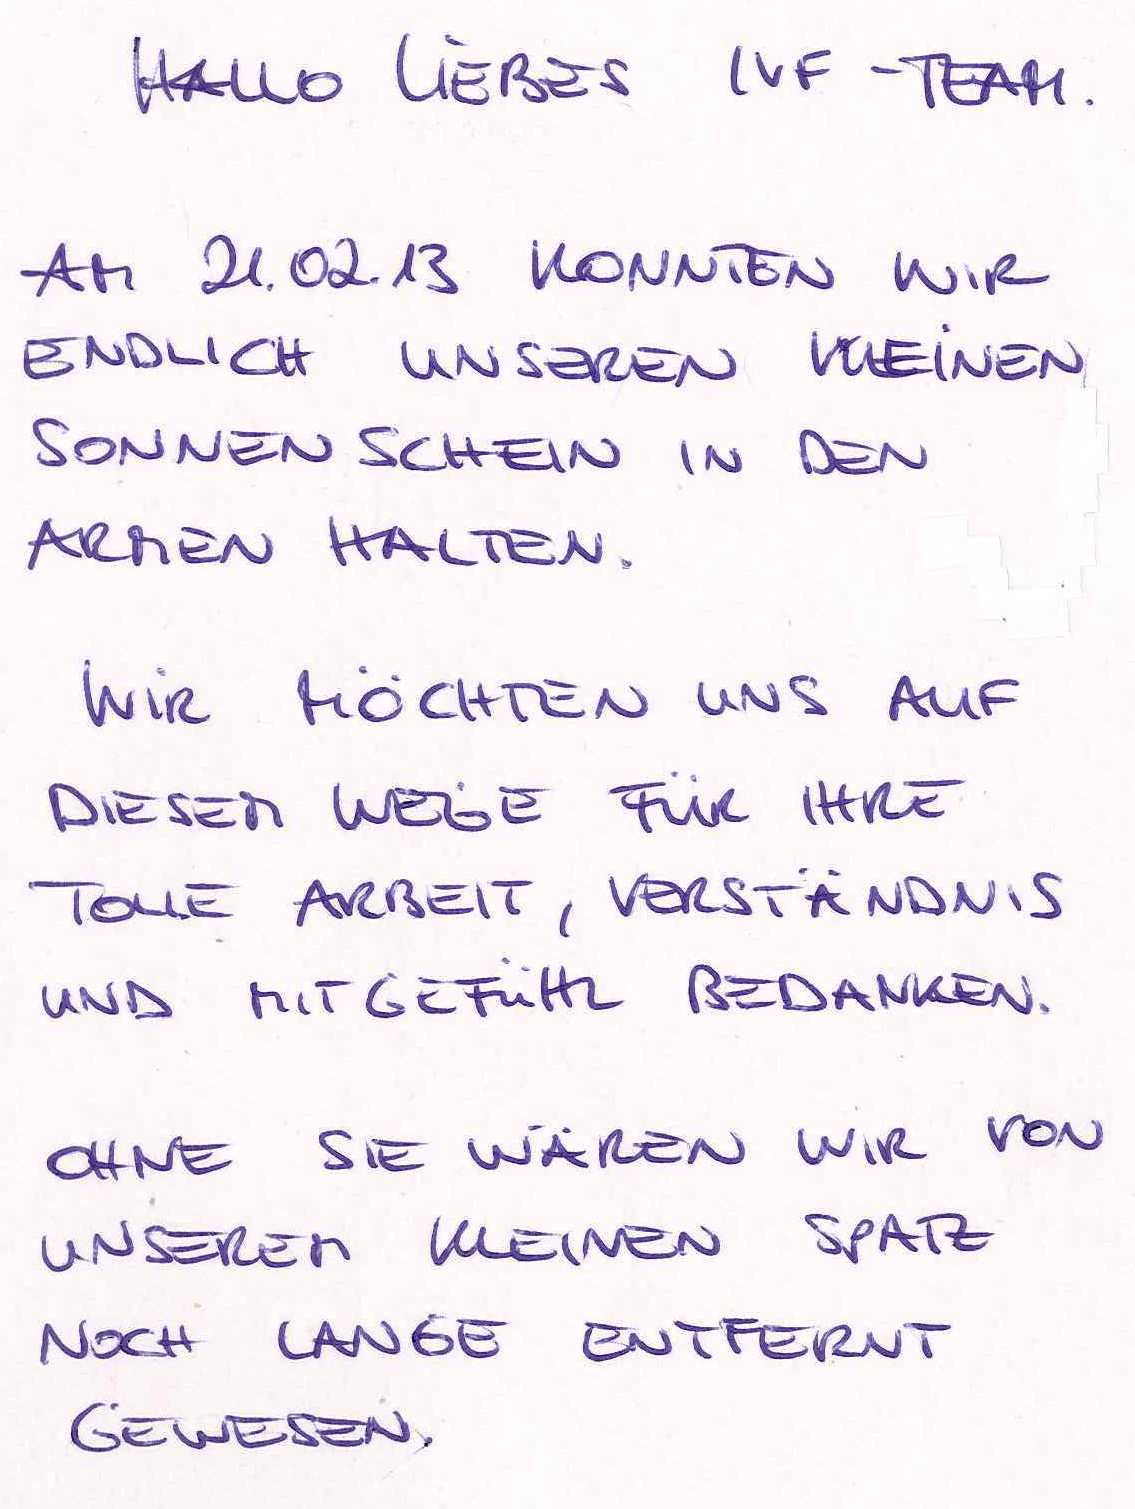 HALLO LIEBES IVF-TEAM.
AM 21.02.13 KONNTEN WIR
ENDLICH UNSEREN KLEINEN
SONNENSCHEIN IN DEN
ARMEN HALTEN.
WIR MÖCHTEN UNS AUF
DIESEM WEGE FÜR IHRE
TOLLE ARBEIT, VERSTÄNDNIS
UND MITGEFÜHL BEDANKEN.
OHNE SIE WÄREN WIR VON
UNSEREM KLEINEN SPATZ
NOCH LANGE ENTFERNT
GEWESEN.